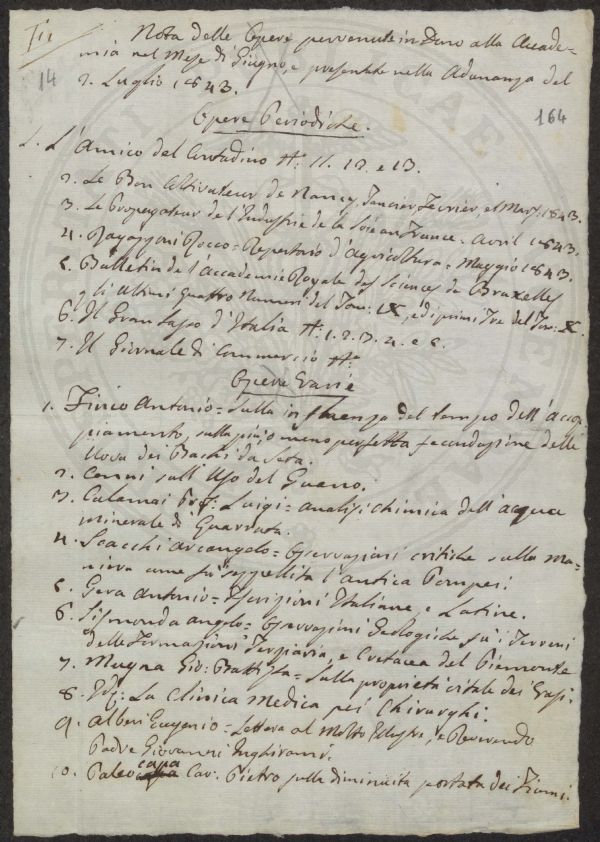 Nota delle Opere pervenute in Dono alla Accade-
mia nel Mese di Giugno, e presentate nella Adunanza del
2. Luglio 1843.
14
164
Opere Periodiche.
1. L'Amico del Contadino N.° 11. 12. e 13.
2. Le Bon Cultivateur de Nancy, Janvier, Fevrier, et Mars 1843.
3. Le Propagateur de l'Industrie de la Soie en France. Avril 1843.
4. Ragazzoni Rocco = Repertorio d'Agricoltura = Maggio 1843.
5. Bulletin de l'Accademie Royale des Sciences de Bruxelles
gli ultimi quattro Numeri del Tom: IX, e di primi Tre del Tom: X.
6. Il Gran Sasso d'Italia N.° 1. 2. 3. 4. e 5.
7. Il Giornale di Commercio N.°
Opere Varie
1. Antonio = Sulla influenza del tempo dell'accop-
piamento, sulla più o meno perfetta fecondazione delle
Uova dei Bachi da Seta.
2. Cenni sull'Uso del Guano.
3. Calamai Prof. Luigi = analisi chimica dell'acqua
minerale di
4. Scacchi Arcangelo = Osservazioni critiche sulla ma-
niera come fu seppellita l'antica Pompei.
5. Gera Antonio = Iscrizioni Italiane, e Latine.
6. Sismonda Angelo = Osservazioni Geologiche su i Terreni
delle Formazioni Terziaria, e Cretacea del Piemonte
7. Mugna Gio: Battista = Sulla proprietà vitale dei
8. Id: La Clinica Medica pei Chirurghi.
9. Alberi Eugenio = Lettera al Molto Illustre, e Reverendo
Padre Giovanni Inghirami.
10. Paleocapa Cav: Pietro sulla diminuita portata dei Fiumi.